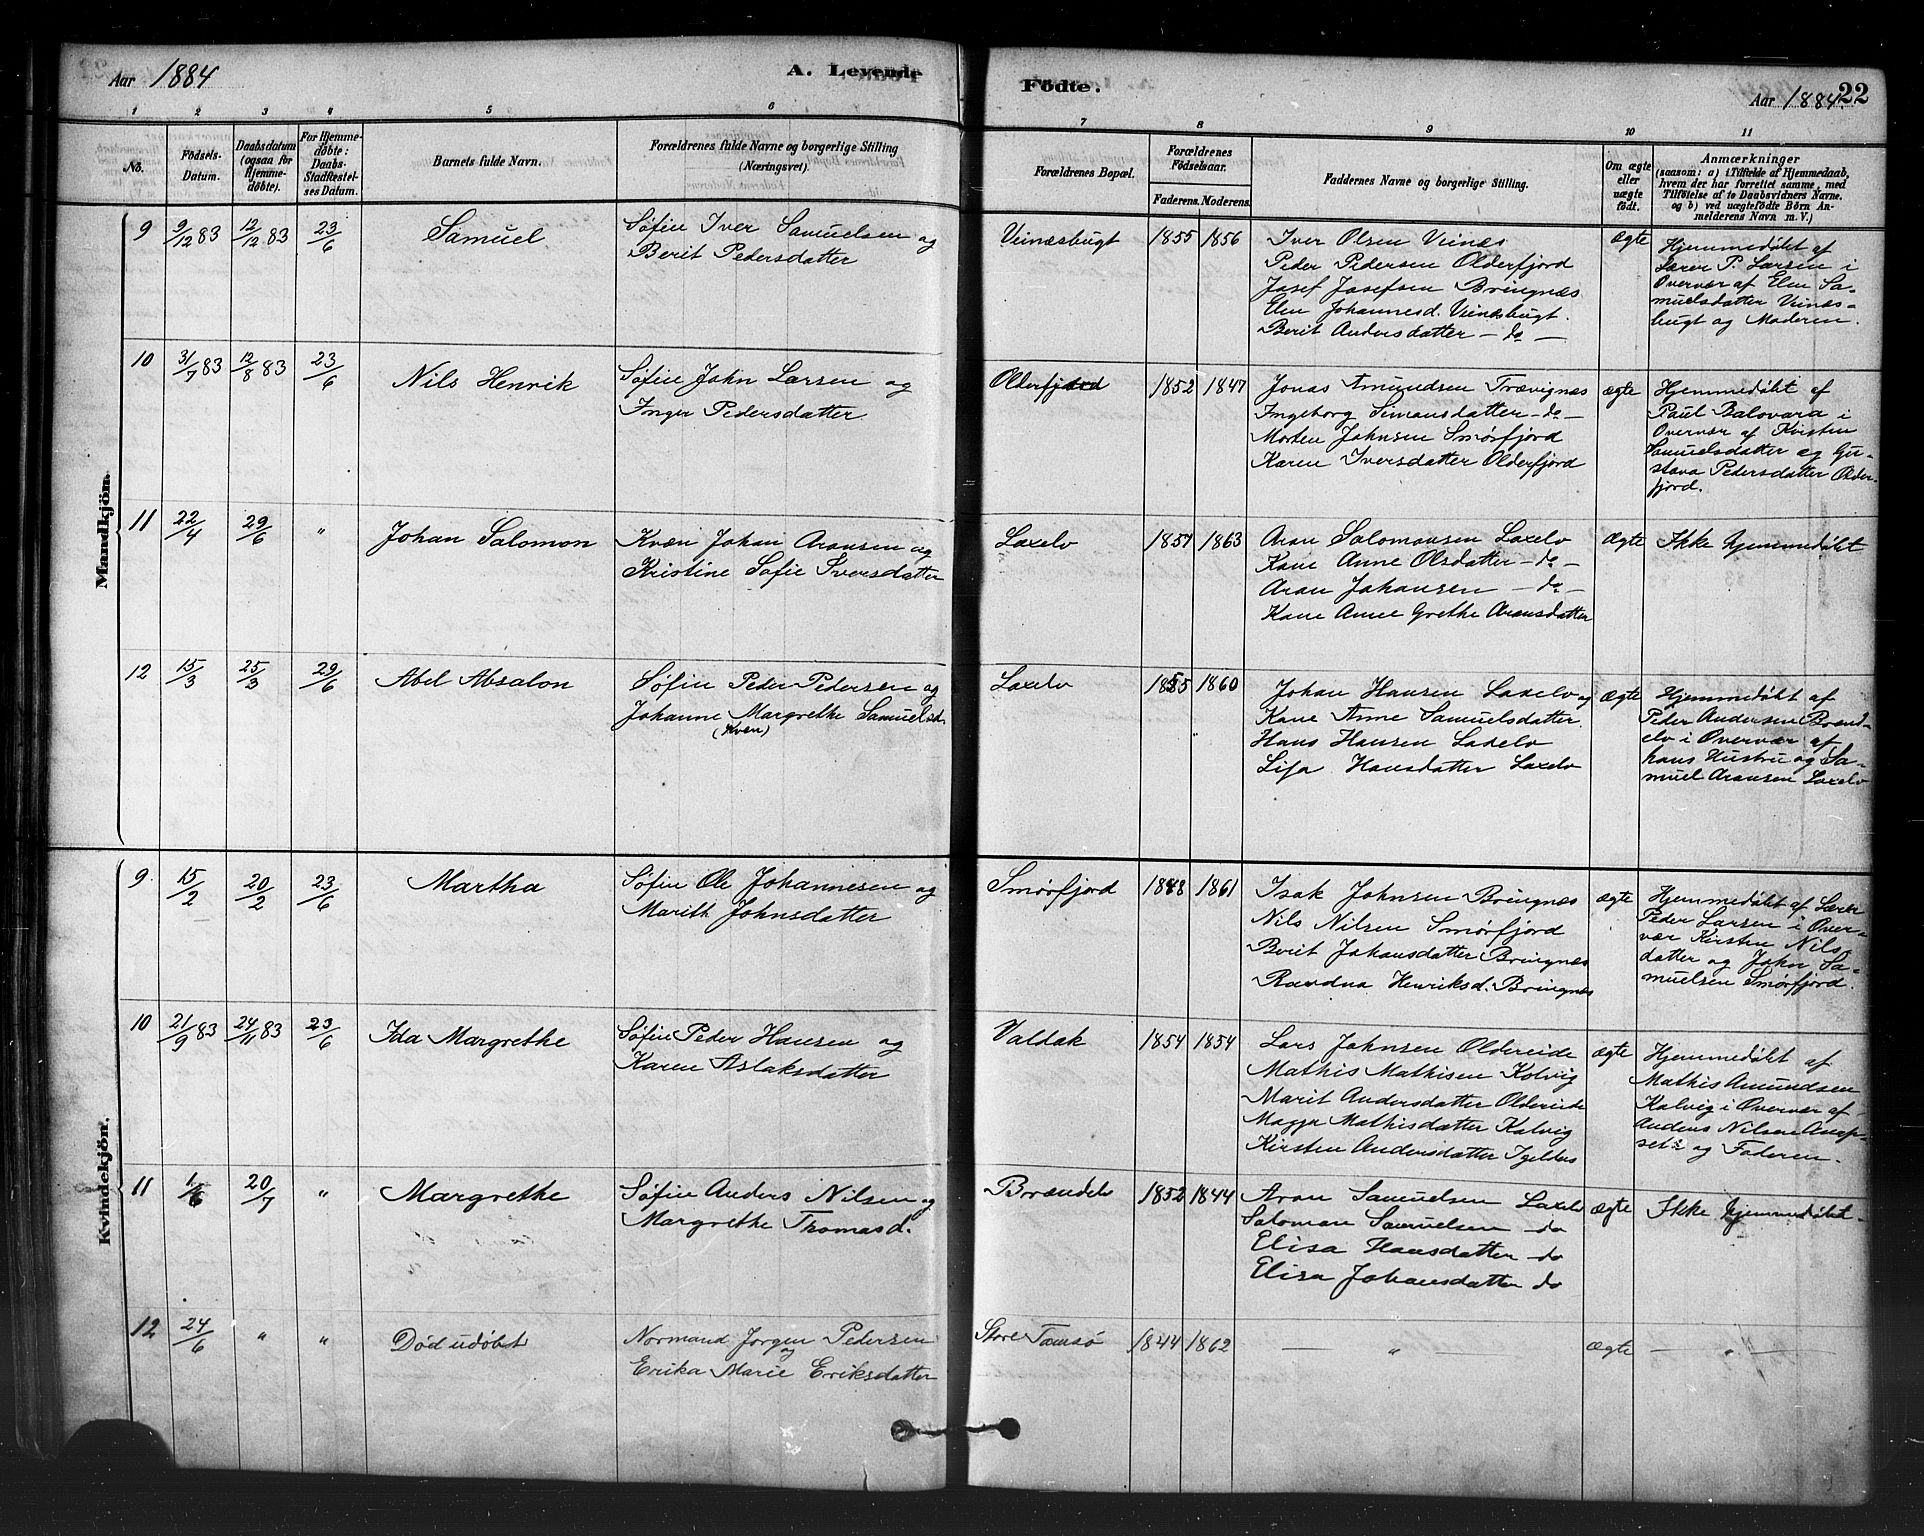 Aar 1884
A. Levende
Födte.
Aar 1884.
22
1 2 3 4 5 6 7 8 9 10 11
No.
Födsels-
Datum.
Daabsdatum
(ogsaa for
Hjemme-
döbte).
For Hjemme-
döbte:
Daabs-
Stadfæstel-
ses Datum.
Barnets fulde Navn.
Forældrenes fulde Navne og borgerlige Stilling
(Næringsvei).
Forældrenes Bopæl.
Forældrenes
Födselsaar.
Faderens. Moderens.
Faddernes Navne og borgerlige Stilling.
Om ægte
eller
uægte
födt.
Anmærkninger
(saasom: a) i Tilfælde af Hjemmedaab,
hvem der har forrettet samme, med
Tilföielse af to Daabsvidners Navne,
og b) ved uægtefödte Börn An-
melderens Navn m. V.)
Mandkjön.
9 9/12 83 12/12 83 23/6 Samuel
Søfin Iver Samuelsen og
Berit Pedersdatter
Veinæsbugt 1855 1856
Iver Olsen Veinæs
Peder Pedersen Olderfjord
Josef Josefsen Bringnæs
Elen Johannesd. Veinæsbugt.
Berit Andersdatter — do —
ægte
Hjemmedøbt af
Lærer P. Larsen i
Overvær af Elen Sa-
muelsdatter Veinæs-
bugt og Moderen.
10 31/7 83 12/8 83 23/6 Nils Henrik
Søfin John Larsen og
Inger Pedersdatter
Olderfjord 1852 1847
Jonas Amundsen Trævignæs
Ingeborg Simonsdatter — do —
Morten Johnsen Smørfjord
Karen Iversdatter Olderfjord
ægte
Hjemmedøbt af
Paul Balovara i
Overvær af Kirsten
Samuelsdatter og Gu-
stava Pedersdatter Older-
fjord.
11 22/4 29/6 " Johan Salomon
Kvæn Johan Aronsen og
Kristine Sofie Iversdatter
Laxelv 1857 1863
Aron Salomonsen Laxelv
Kone Anne Olsdatter — do —
Aron Johansen — do —
Kone Anne Grethe Aronsdatter
Ægte
Ikke hjemmedøbt
12 15/3 25/3 29/6 Abel Absalon
Søfin Peder Pedersen og
Johanne Margrethe Samuelsd.
(Kven)
Laxelv 1855 1860
Johan Hansen Laxelv og
Kone Anne Samuelsdatter
Hans Hansen Laxelv
Lisa Hansdatter Laxelv
Ægte
Hjemmedøbt af
Peder Andersen Brænd-
elv i Overvær af
hans Hustru og Sa-
muel Aronsen Laxelv
Kvindekjön.
9 15/2 20/2 23/6 Martha
Søfin Ole Johannesen og
Marith Johnsdatter
Smørfjord 1848 1861
Isak Johnsen Bringnæs
Nils Nilsen Smørfjord
Berit Johansdatter Bringnæs
Ravdna Henriksd. Bringnæs
ægte
Hjemmedøbt af Lærer
Peder Larsen i Over-
vær Kirsten Nils-
datter og John Sa-
muelsen Smørfjord.
10 21/9 83 24/11 83 23/6 Ida Margrethe
Søfin Peder Hansen og
Karen Aslaksdatter
Valdak 1854 1854
Lars Johnsen Oldereide
Mathis Mathisen Kolvig
Marit Andersdatter Oldereide
Magga Mathisdatter Kolvig
Kirsten Andersdatter Igeldæs
ægte
Hjemmedøbt af
Mathis Amundsen
Kolvig i Overvær af
Anders Nilsen
og Faderen.
11 1/6 20/7 " Margrethe
Søfin Anders Nilsen og
Margrethe Thomasd.
Brændelv 1852 1844
Aron Samuelsen Laxelv
Salomon Samuelsen — do
Elisa Hansdatter — do
Elisa Johansdatter do
ægte
Ikke hjemmedøbt.
12 24/6 " " Død udøbt
Normand Jørgen Pedersen
og
Erika Marie Eriksdatter
Store Tamsø 1844 1862
— " —
ægte
— " —